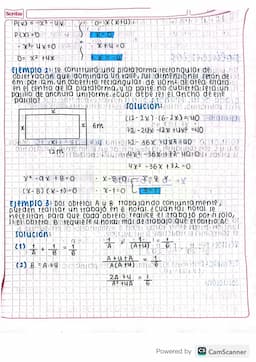 P(x) = -x² + 4x
0 = x(x+4)
P(x) = 0
-x² + 4x = 0
x + 4 = 0
0 = x² + 4x
Ejemplo 2: Se construye una plataforma rectangular de
observación que dominará un valle, sus dimensiones serán de
6m por 12m. Un cobertizo rectangular de 40 m² de área estará
en el centro de la plataforma, y la parte no cubierta será un
pasillo de anchura uniforme. ¿Cuál debe ser el ancho de este
pasillo?
Solución:
(12-2x) (6-2x) = 40
72 - 24x - 12x + 4x² = 40
72 - 36x + 4x² = 40
6m
12m
4x² - 36x + 72 - 40 = 0
4x² - 36x + 32 = 0
x² - 9x + 8 = 0
x - 8 = 0
(x-8) (x-1) = 0
x - 1 = 0
Ejemplo 3: Dos obreros A y B trabajando conjuntamente,
pueden realizar un trabajo en 6 horas. ¿Cuántas horas
necesitan para que cada obrero realice el trabajo por sí solo,
si el obrero B requiere 4 horas más de trabajo que el obrero A?
Solución:
(1) 1/A + 1/B = 1/6
1/A + 1/(A+4) = 1/6
(2) B = A + 4
A+4+A / A(A+4) = 1/6
2A+4 / A²+4A = 1/6
Powered by CS CamScanner